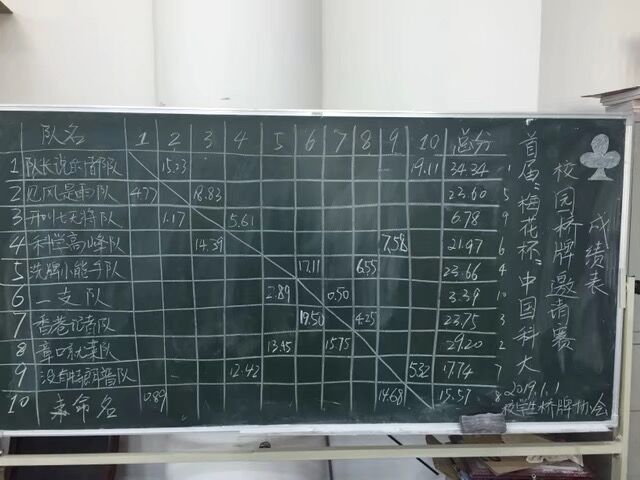 队名 1 2 3 4 5 6 7 8 9 10 总分
1 队长说的都队 15.23 19.11 34.34 1
2 见风是雨队 4.77 18.83 23.60 5
3 1.17 5.61 6.78 9
4 科学高峰队 14.39 7.58 21.97 6
5 洗牌小能手队 17.11 6.55 23.66 4
6 一支队 2.89 0.50 3.39 10
7 香港记者队 19.50 4.25 23.75 3
8 章口就莱队 13.45 15.75 29.20 2
9 没有特朗普队 12.42 5.32 17.74 7
10 未命名 0.89 14.68 15.57 8
首届"梅花杯"中国科大
校园桥牌邀请赛
成绩表
2019.1.1
校学生桥牌协会